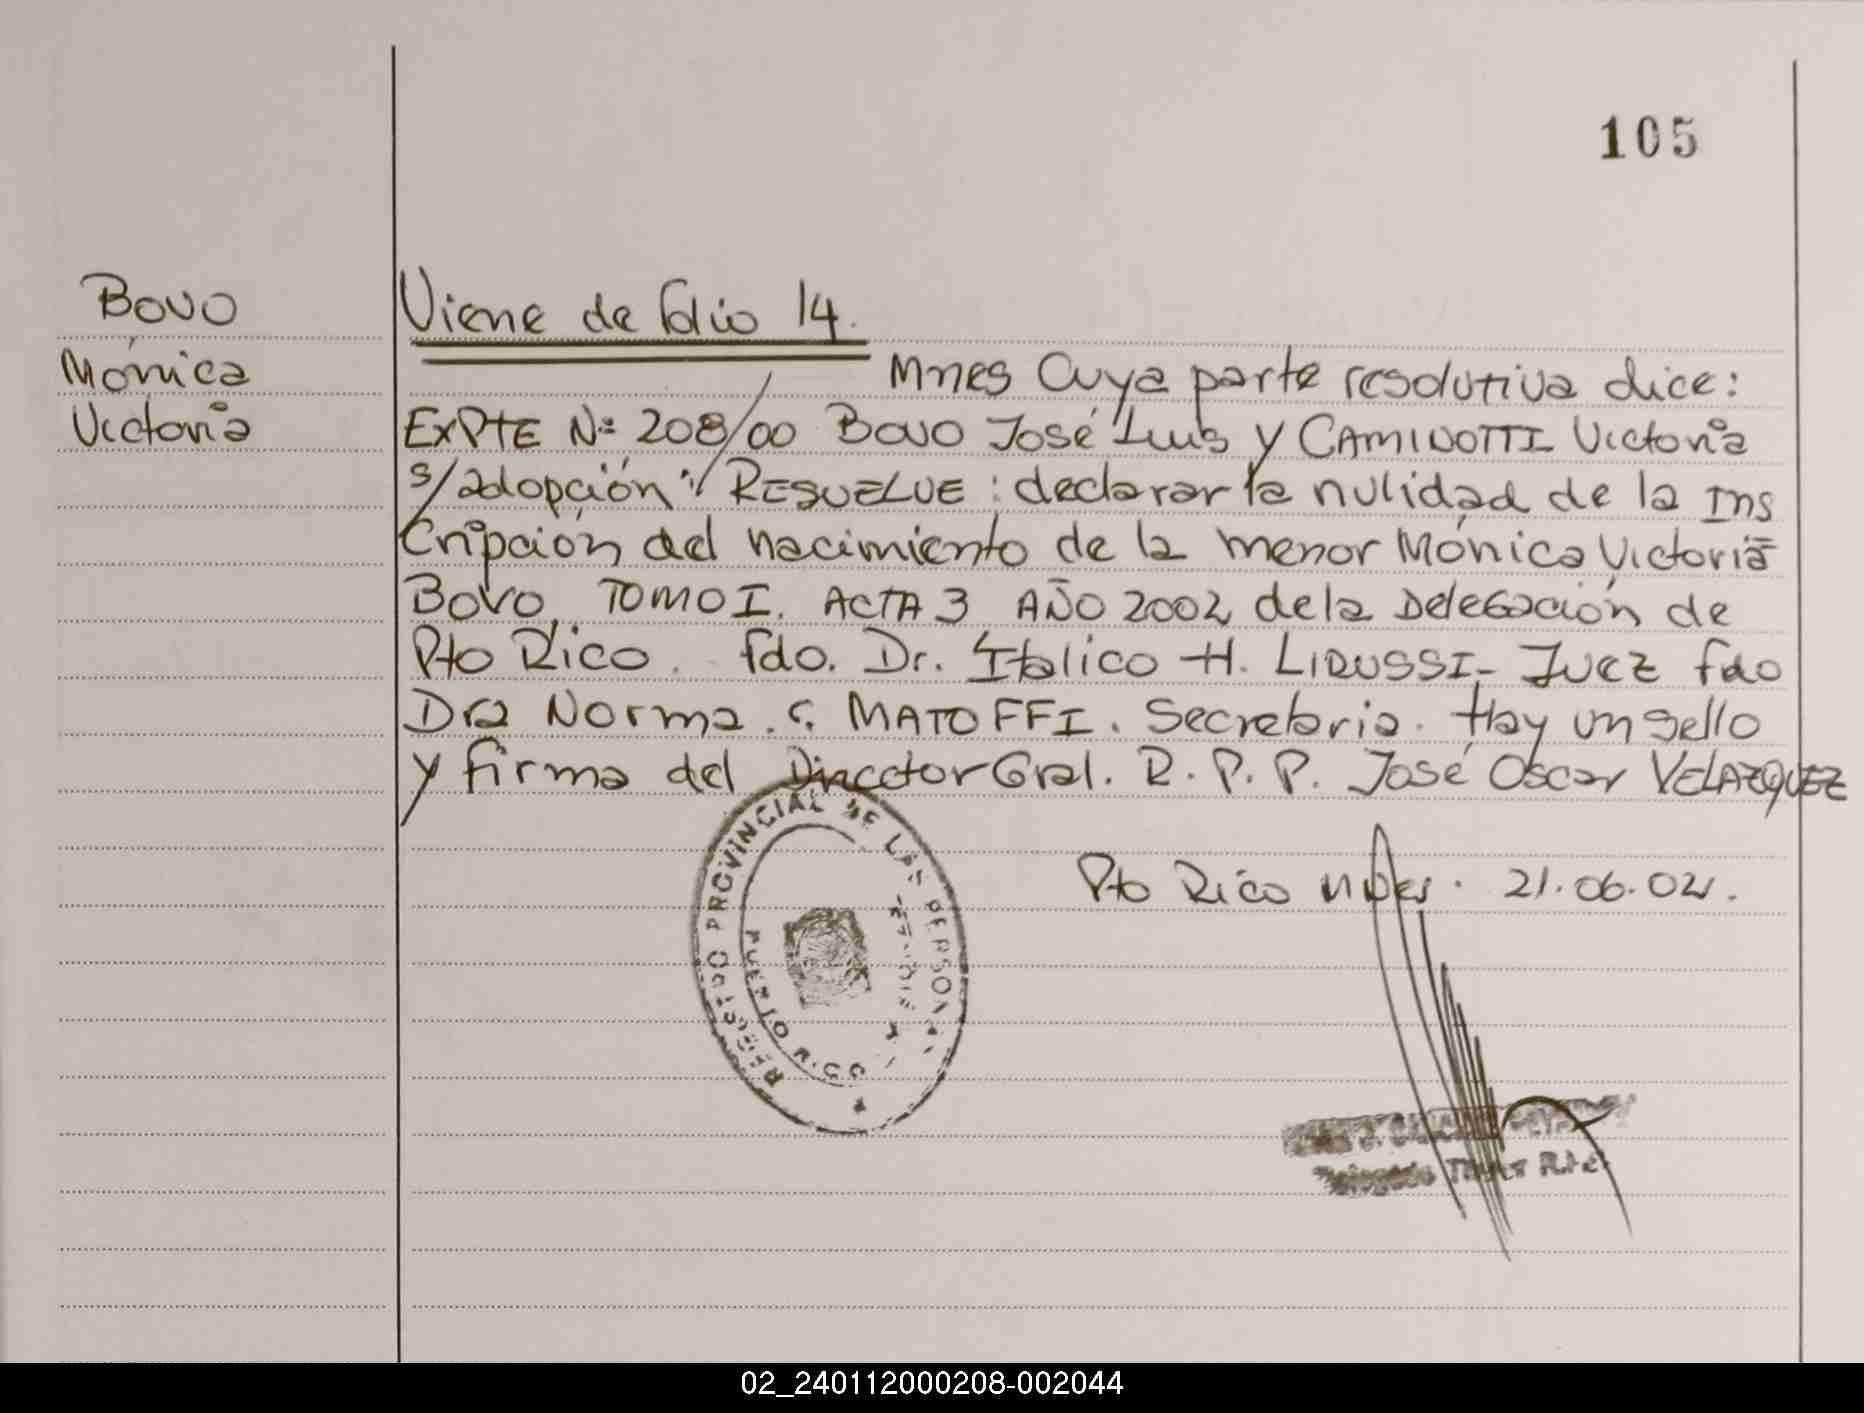 105
Bovo
Mónica
Victoria
Viene de folio 14.
Mnes Cuya parte resolutiva dice:
EXPTE Nº 208/00 Bovo José Luis y CAMINOTTI Victoria
s/adopción" RESUELVE: declarar la nulidad de la Ins
cripción del nacimiento de la menor Mónica Victoria
Bovo, TOMO I. ACTA 3 AÑO 2002 de la Delegación de
Pto Rico. fdo. Dr. Italico H. LIRUSSI- JUEZ fdo
Dra Norma. G. MATOFFI. Secretaria. Hay un sello
y firma del Director Gral. R. P. P. José Oscar VELAZQUEZ
Pto Rico Mnes. 21.06.02.
REGISTRO PROVINCIAL DE LAS PERSONAS
PUERTO RICO
Delegado Titular
02_240112000208-002044